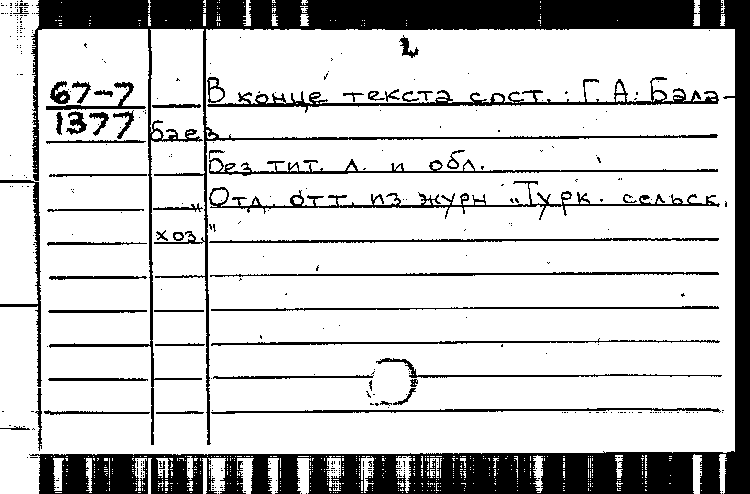 2
67-7 В конце текста сост.: Г. А. Бала-
1377 баев.
Без тит. л. и обл.
„Отд. отт. из журн „Турк. сельск.
хоз."